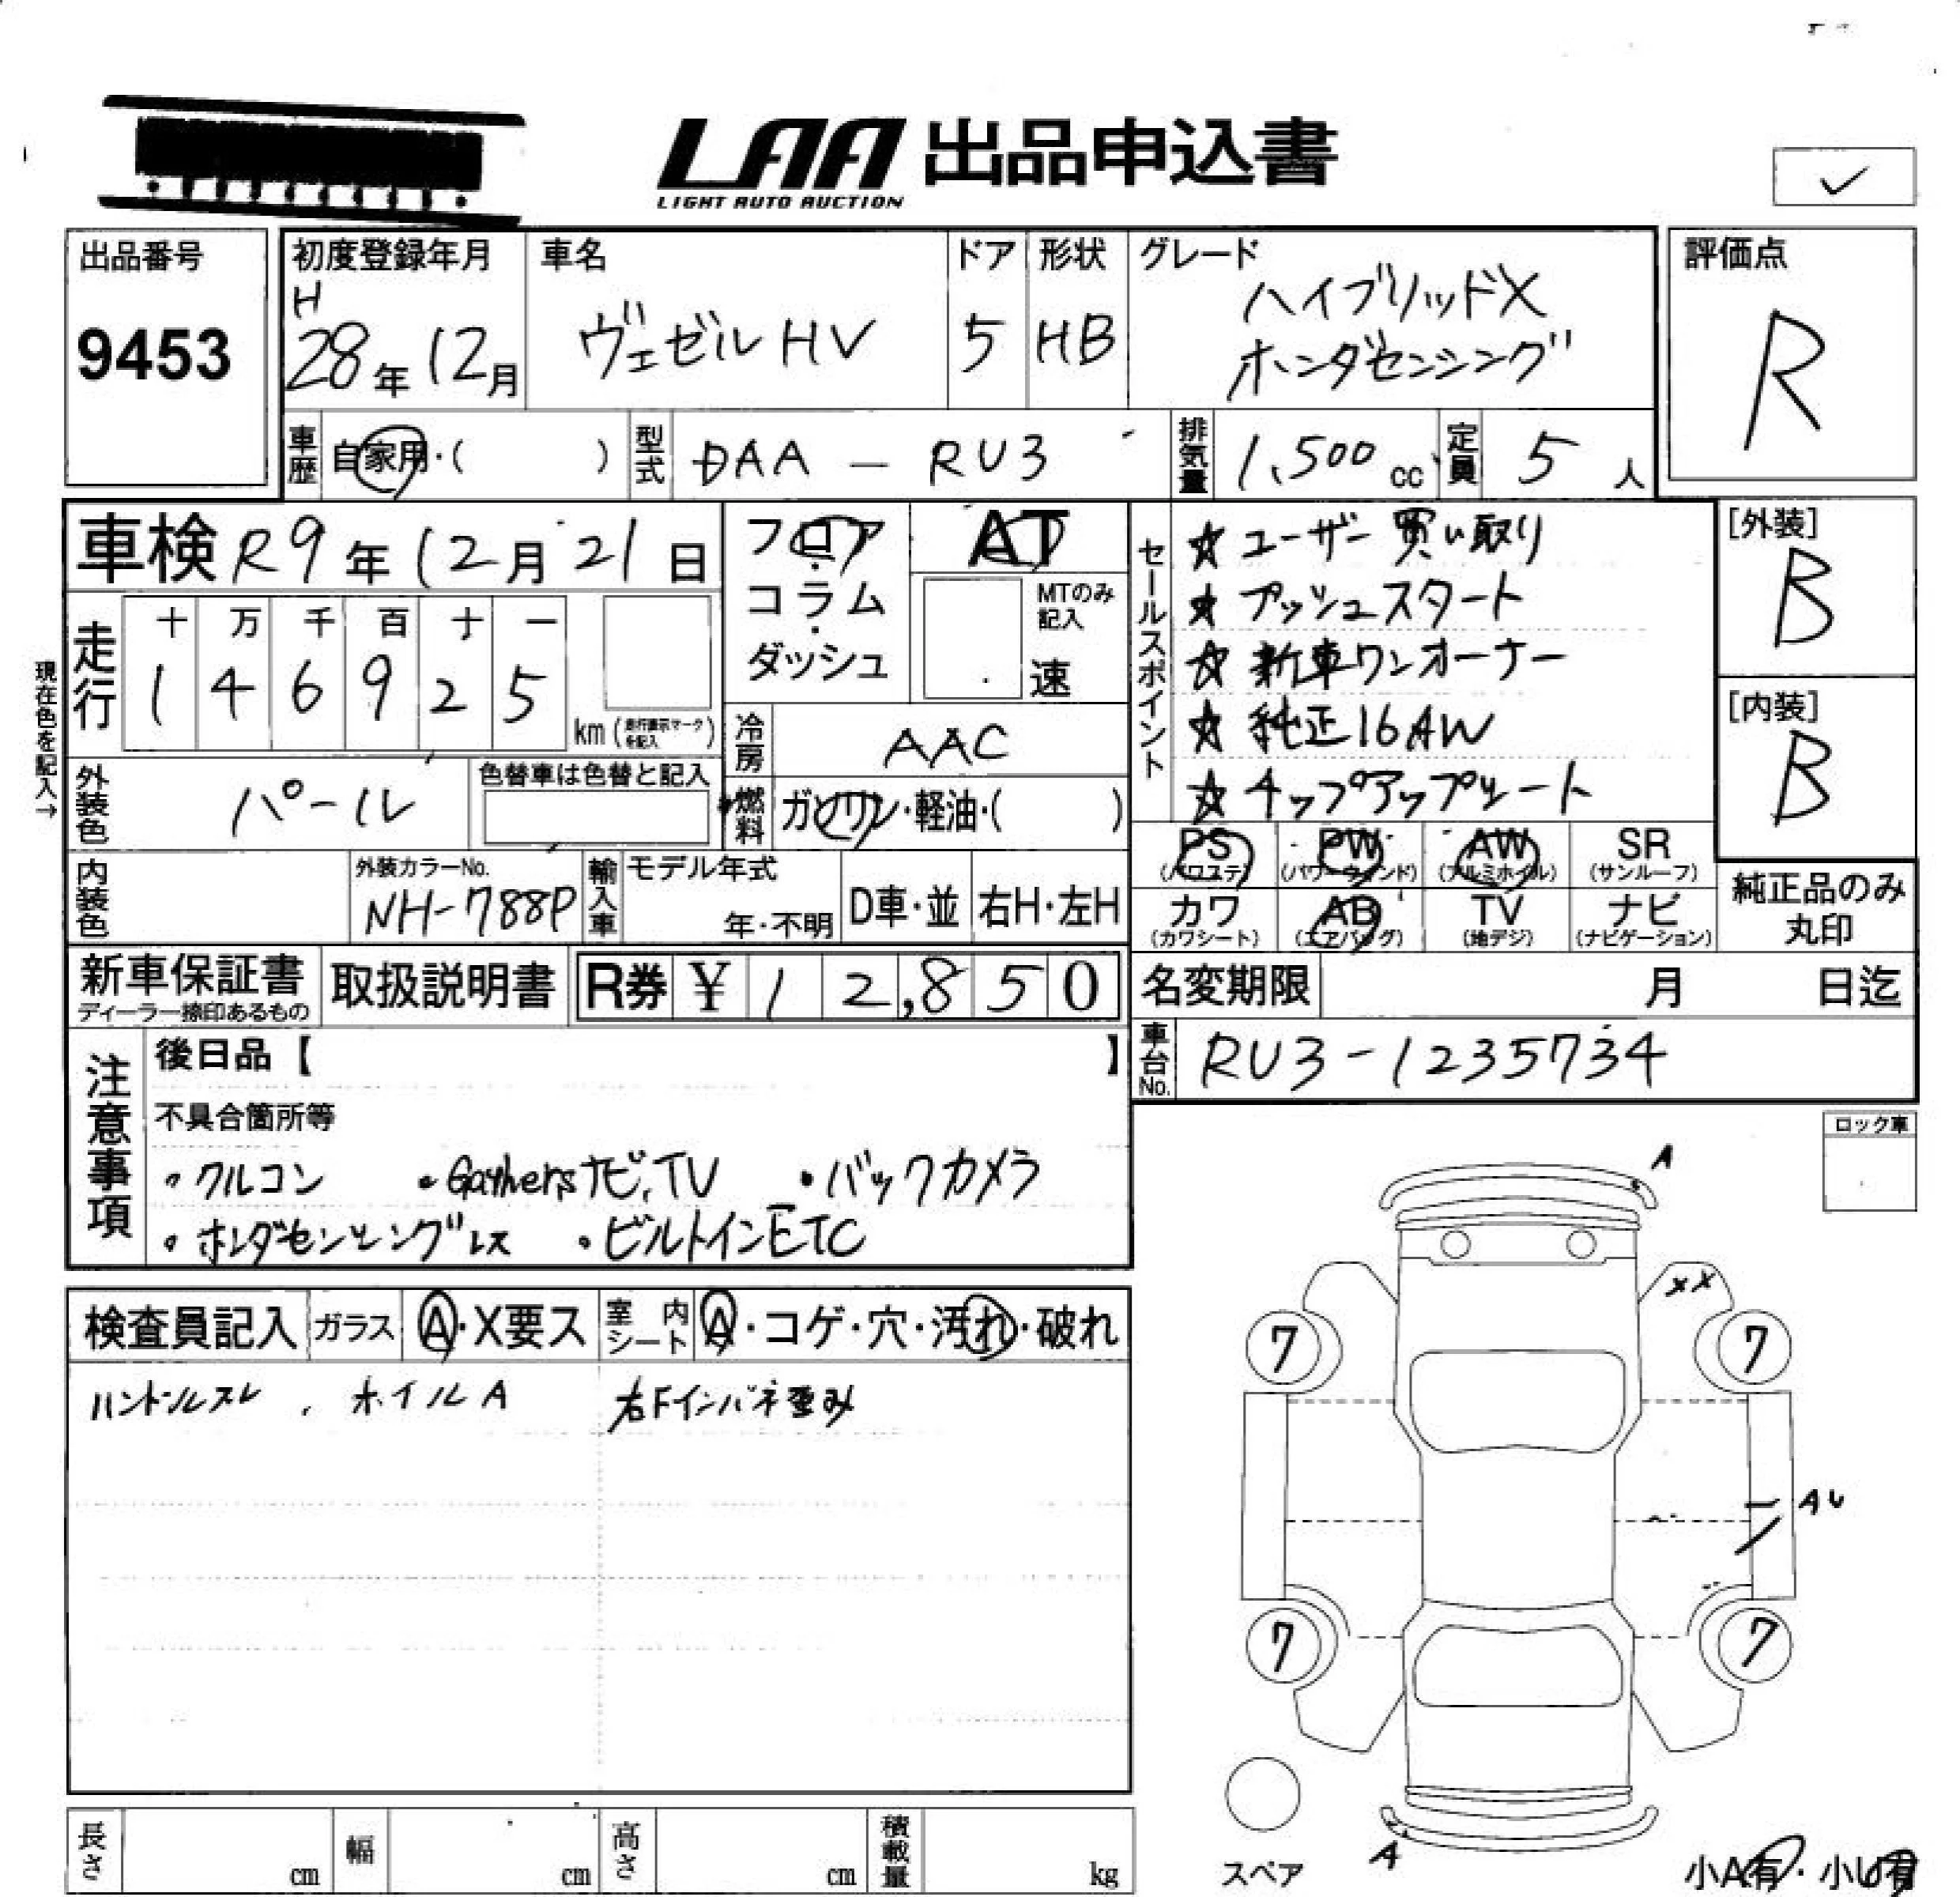 LAA 出品申込書
LIGHT AUTO AUCTION
✓
出品番号
9453
初度登録年月
H
28年12月
車名
ヴェゼルHV
ドア
5
形状
HB
グレード
ハイブリッドX
ホンダセンシング
評価点
R
車歴
自家用・( )
型式
DAA - RU3
排気量
1,500cc
定員
5人
車検 R9年12月21日
フロア・
コラム・
ダッシュ
AT
MTのみ
記入
速
セールスポイント
☆ ユーザー買い取り
☆ プッシュスタート
☆ 新車ワンオーナー
☆ 純正16AW
☆ チップアップシート
[外装]
B
[内装]
B
現在色を記入→
走行
十 万 千 百 十 一
1 4 6 9 2 5
km (走行表示マークを記入)
冷房
AAC
外装色
パール
色替車は色替と記入
燃料
ガソリン・軽油・( )
PS
(パワステ)
PW
(パワーウィンド)
AW
(アルミホイル)
SR
(サンルーフ)
カワ
(カワシート)
AB
(エアバッグ)
TV
(地デジ)
ナビ
(ナビゲーション)
純正品のみ
丸印
内装色
外装カラーNo.
NH-788P
輸入車
モデル年式
年・不明
D車・並
右H・左H
新車保証書
ディーラー捺印あるもの
取扱説明書
R券 ¥12,850
名変期限 月 日迄
車台No.
RU3-1235734
注意事項
後日品【 】
不具合箇所等
・クルコン ・Gathersナビ,TV ・バックカメラ
・ホンダセンシングレス ・ビルトインETC
ロック車
検査員記入
ガラス
A・X要ス
室内シート
A・コゲ・穴・汚れ・破れ
ハンドルスレ、ホイルA 右Fインパネ歪み
A
XX
7
7
AU
7
7
A
スペア
小A有・小U有
長さ
cm
幅
cm
高さ
cm
積載量
kg